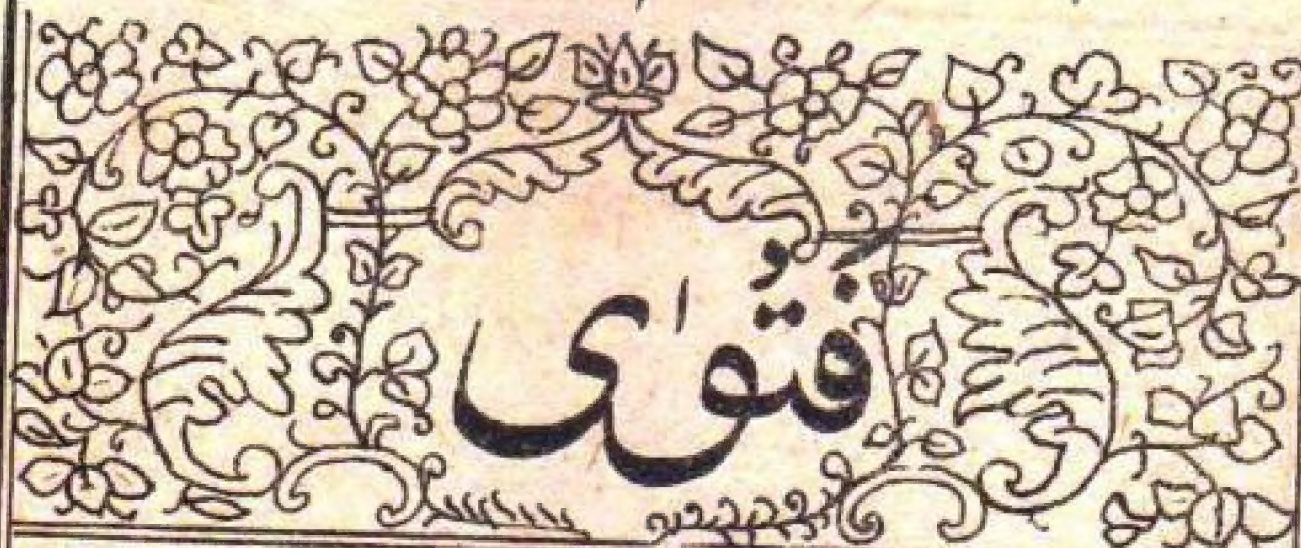 فَتُوٰی